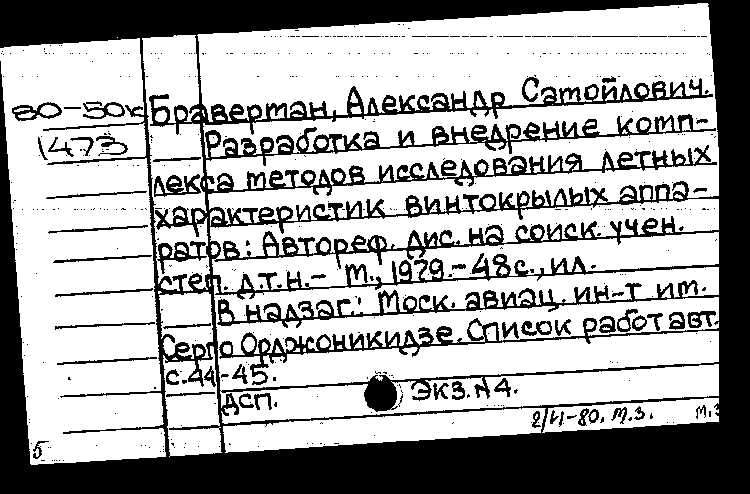 80-50к Браверман, Александр Самойлович.
1473 Разработка и внедрение комп-
лекса методов исследования летных
характеристик винтокрылых аппа-
ратов: Автореф. дис. на соиск. учен.
степ. д.т.н.- М., 1979.-48с., ил.
В надзаг.: Моск. авиац. ин-т им.
Серго Орджоникидзе. Список работ авт.
с.44-45.
ДСП. Экз.N4.
80. м.з.
5